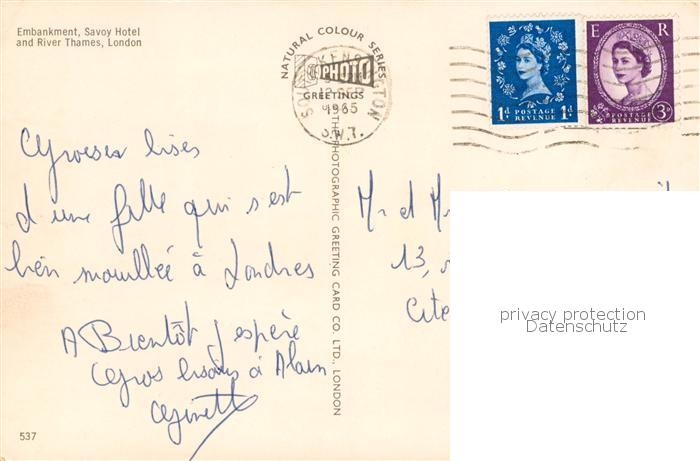 Embankment, Savoy Hotel
and River Thames, London
NATURAL COLOUR SERIES
PHOTO
GREETINGS
THE PHOTOGRAPHIC GREETING CARD CO. LTD., LONDON
KENSINGTON
12 SEP
1965
S.W.7.
1d POSTAGE 1d
REVENUE
E R
POSTAGE 3d
REVENUE
Grosses bises
d'une fille qui s'est
bien mouillée à Londres
A Bientôt j'espère
Gros bisous à Alain
Ginette
Mr et
13,
Cité
privacy protection
Datenschutz
537